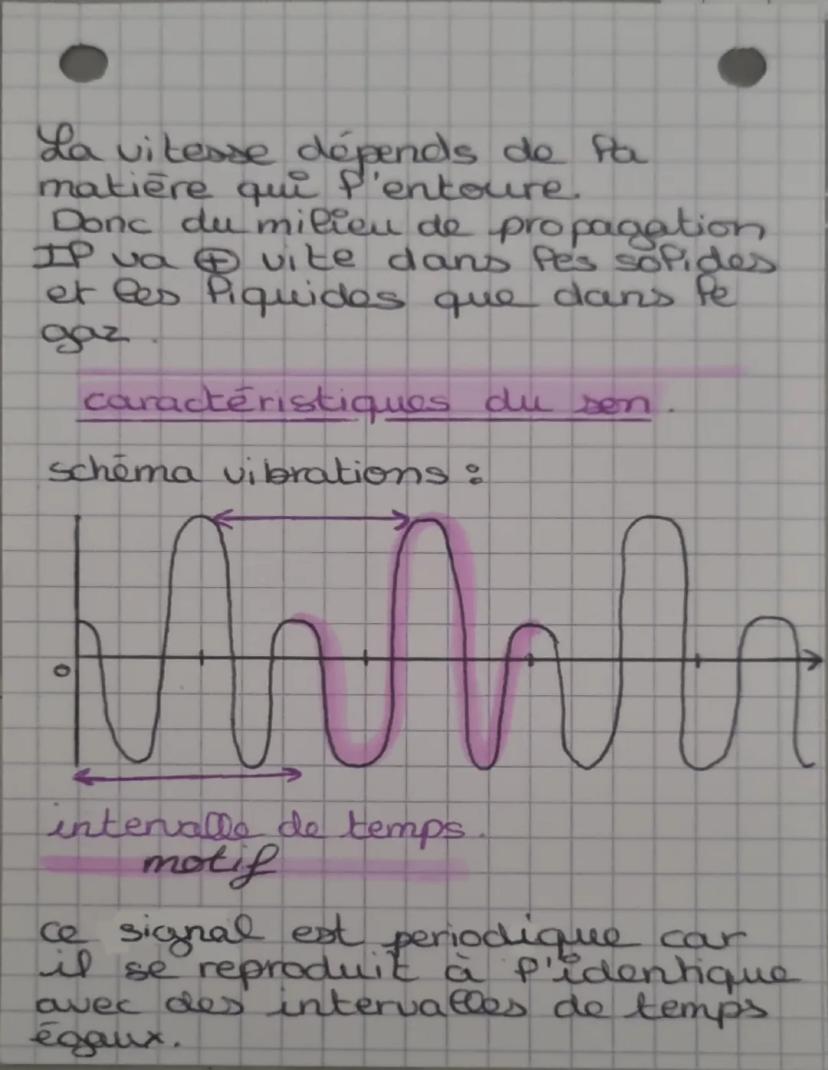 La vitesse dépends de la
matière qui l'entoure.
Donc du milieu de propagation
Il va ⊕ vite dans les solides
et les liquides que dans le
gaz.
caractéristiques du son.
schéma vibrations :
0
intervalle de temps.
motif
ce signal est periodique car
il se reproduit à l'identique
avec des intervalles de temps
égaux.